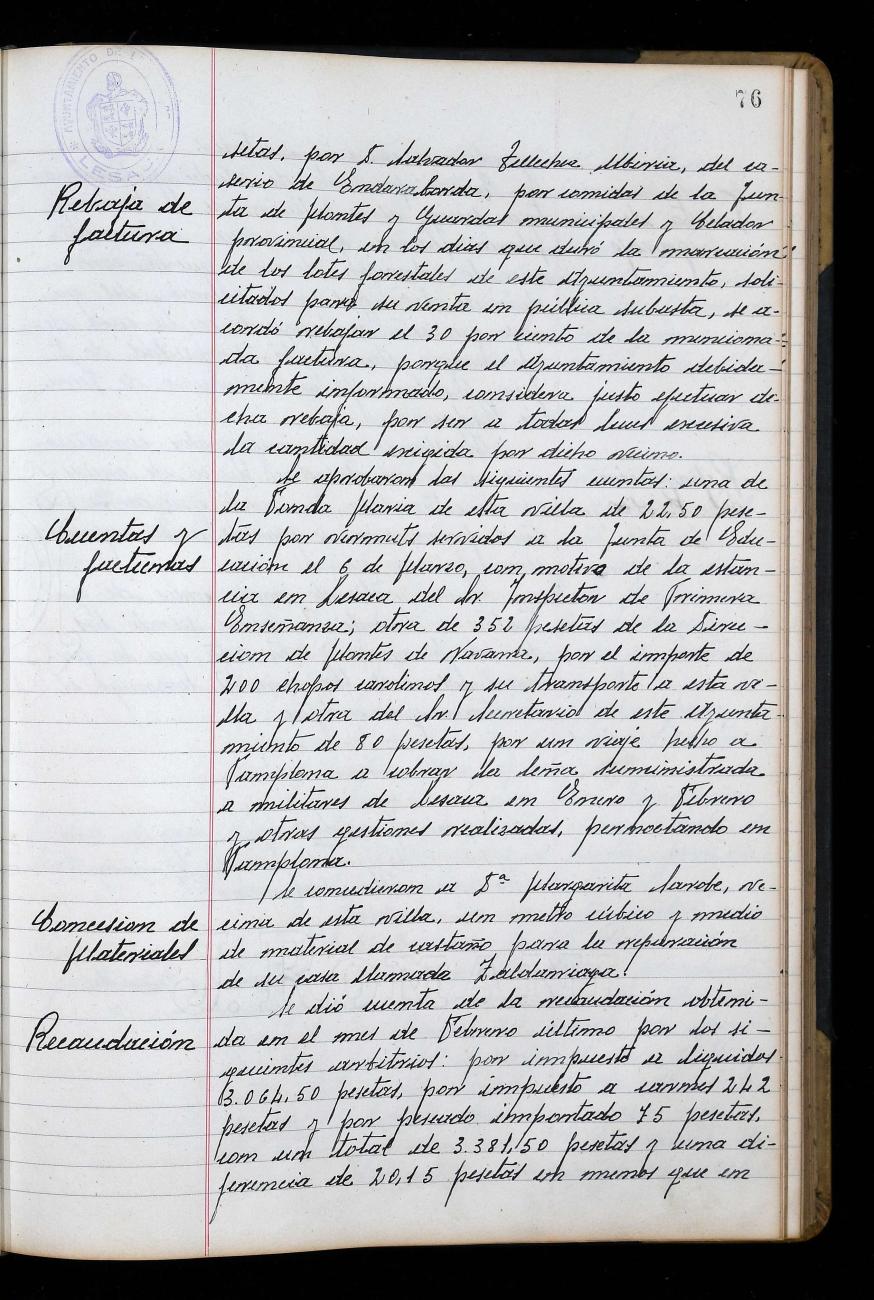 76
AYUNTAMIENTO DE
LESACA
setas, por D. Salvador Tellechea Ubiria, del ca-
serio de Endaraborda, por comidas de la Jun-
Rebaja de
factura
ta de Montes y Guardas municipales y Celador
provincial, en los dias que duró la marcación
de los lotes forestales de este Ayuntamiento, soli-
citados para su venta en pública subasta, se a-
cordó rebajar el 30 por ciento de la menciona-
da factura, porque el Ayuntamiento debida-
mente informado, considera justo efectuar di-
cha rebaja, por ser a todas luces excesiva
la cantidad exigida por dicho vecino.
Se aprobaron las siguientes cuentas: una de
la Fonda Maria de esta villa de 22,50 pese-
Cuentas y
facturas
tas por vermuts servidos a la Junta de Edu-
cación el 6 de Marzo, con motivo de la estan-
cia en Lesaca del Sr. Inspector de Primera
Enseñanza; otra de 352 pesetas de la Direc-
cion de Montes de Navarra, por el importe de
200 chopos carolinos y su transporte a esta vi-
lla y otra del Sr. Secretario de este Ayunta-
miento de 80 pesetas, por un viaje hecho a
Pamplona a cobrar la leña suministrada
a militares de Lesaca en Enero y Febrero
y otras gestiones realizadas, pernoctando en
Pamplona.
Se concedieron a Dª Margarita Sarobe, ve-
Concesion de
Materiales
cina de esta villa, un metro cúbico y medio
de material de castaño para la reparación
de su casa llamada Zaldarriaga.
Se dió cuenta de la recaudación obteni-
Recaudación
da en el mes de Febrero último por los si-
guientes arbitrios: por impuesto a liquidos
3.064,50 pesetas, por impuesto a carnes 242
pesetas y por pescado importado 75 pesetas,
con un total de 3.381,50 pesetas y una di-
ferencia de 20,15 pesetas en menos que en